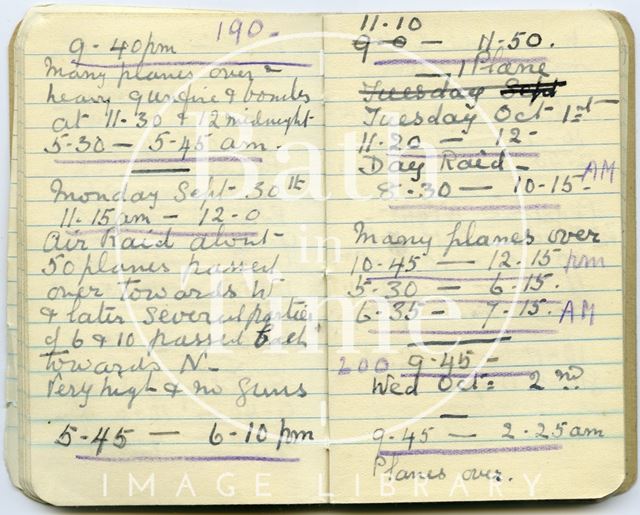 190.
9-40pm
Many planes over &
heavy gunfire & bombs
at 11-30 & 12 midnight
5-30 - 5-45 am.
Monday Sept- 30th
11-15am - 12-0
Air Raid about
50 planes passed
over towards W
& later several parties
of 6 & 10 passed back
towards N-
Very high & no guns
5-45 - 6-10 pm
11.10
9-0 - 11-50.
1 Plane
Tuesday Sept
Tuesday Oct 1st
11-20 - 12-
Day Raid -
8-30 - 10-15- AM
Many planes over
10-45 - 12-15 pm
5-30 - 6-15.
6-35 - 7-15. AM
200 9-45-
Wed Oct= 2nd
9-45 - 2-25am
Planes over.
Bath
in
Time
IMAGE LIBRARY